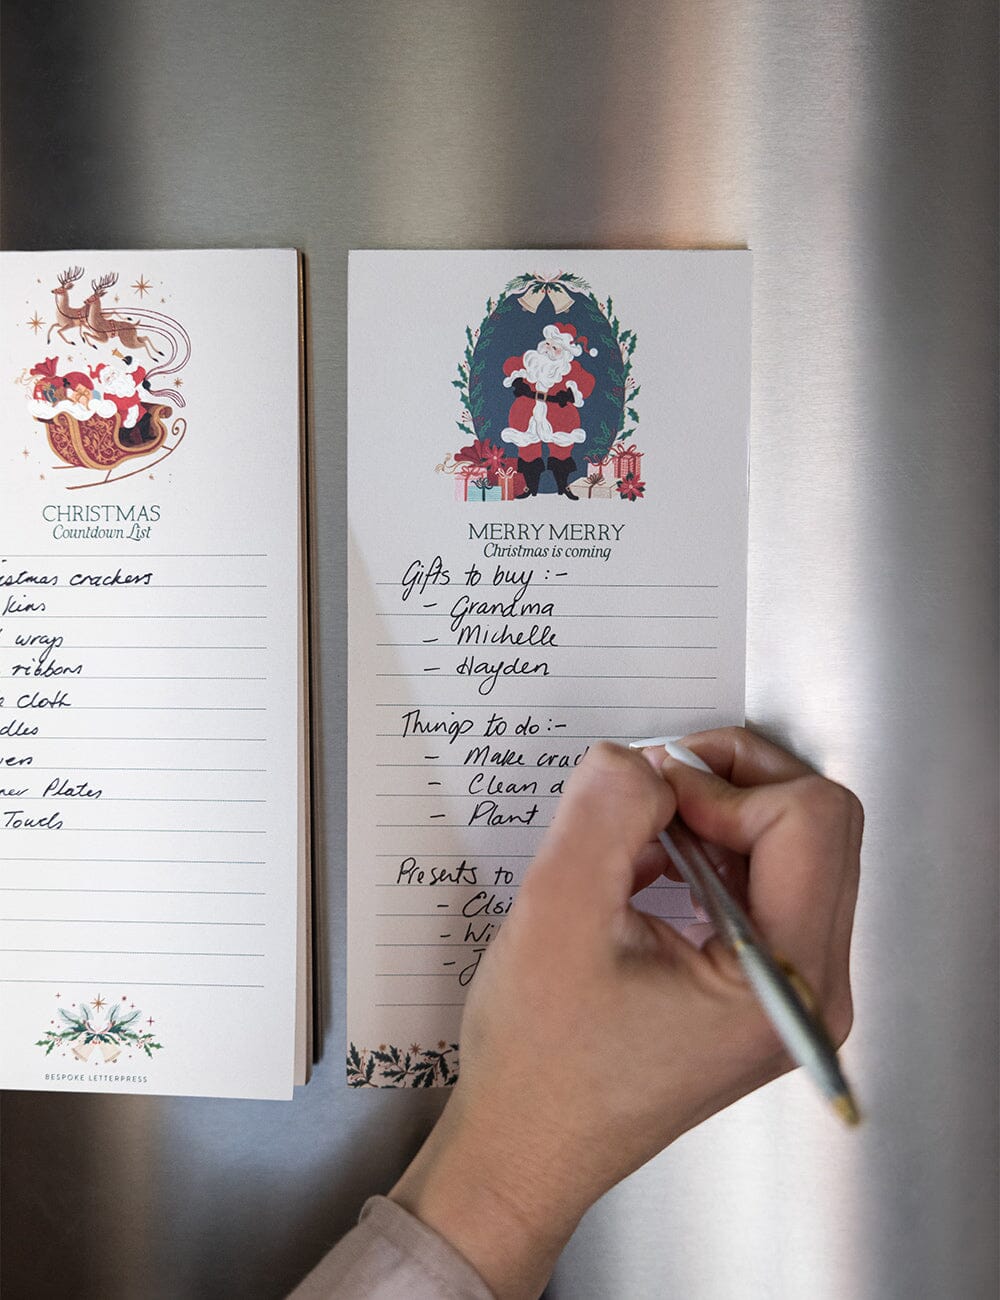 CHRISTMAS
Countdown List
crackers
wraps
ribbons
cloth
Plates
Towels
BESPOKE LETTERPRESS
MERRY MERRY
Christmas is coming
Gifts to buy :-
- Grandma
- Michelle
- Hayden
Things to do :-
- Make
- Clean
- Plant
Presents to